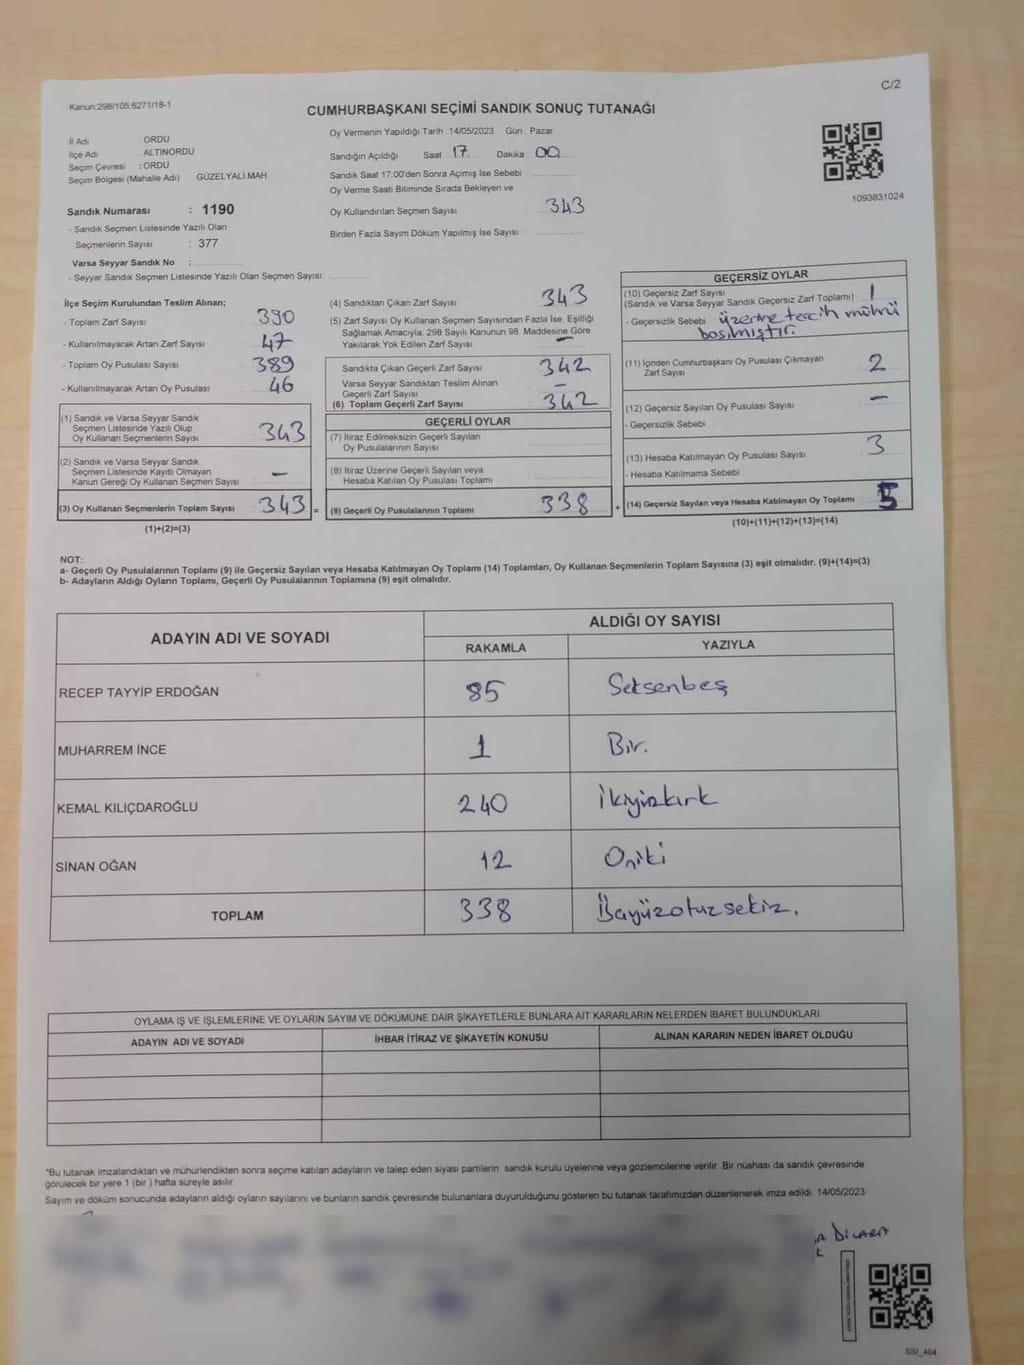 C/2
Kanun:298/105;6271/18-1
CUMHURBAŞKANI SEÇİMİ SANDIK SONUÇ TUTANAĞI
İl Adı ORDU
İlçe Adı ALTINORDU
Seçim Çevresi : ORDU
Seçim Bölgesi (Mahalle Adı) GÜZELYALI MAH.
Oy Vermenin Yapıldığı Tarih 14/05/2023 Gün Pazar
Sandığın Açıldığı Saat 17 Dakika 00
Sandık Saat 17:00'den Sonra Açımış İse Sebebi
Oy Verme Saati Bitiminde Sırada Bekleyen ve
Oy Kullandırılan Seçmen Sayısı : 343
Birden Fazla Sayım Döküm Yapılmış İse Sayısı :
1093831024
Sandık Numarası : 1190
- Sandık Seçmen Listesinde Yazılı Olan
Seçmenlerin Sayısı : 377
Varsa Seyyar Sandık No :
- Seyyar Sandık Seçmen Listesinde Yazılı Olan Seçmen Sayısı:
İlçe Seçim Kurulundan Teslim Alınan;
- Toplam Zarf Sayısı : 390
- Kullanılmayarak Artan Zarf Sayısı : 47
- Toplam Oy Pusulası Sayısı : 389
- Kullanılmayarak Artan Oy Pusulası : 46
(1) Sandık ve Varsa Seyyar Sandık
Seçmen Listesinde Yazılı Olup
Oy Kullanan Seçmenlerin Sayısı : 343
(2) Sandık ve Varsa Seyyar Sandık
Seçmen Listesinde Kayıtlı Olmayan
Kanun Gereği Oy Kullanan Seçmen Sayısı : -
(3) Oy Kullanan Seçmenlerin Toplam Sayısı : 343 =
(1)+(2)=(3)
(4) Sandıktan Çıkan Zarf Sayısı : 343
(5) Zarf Sayısı Oy Kullanan Seçmen Sayısından Fazla İse, Eşitliği
Sağlamak Amacıyla, 298 Sayılı Kanunun 98. Maddesine Göre
Yakılarak Yok Edilen Zarf Sayısı : -
Sandıkta Çıkan Geçerli Zarf Sayısı : 342
Varsa Seyyar Sandıktan Teslim Alınan
Geçerli Zarf Sayısı : -
(6) Toplam Geçerli Zarf Sayısı : 342
GEÇERLİ OYLAR
(7) İtiraz Edilmeksizin Geçerli Sayılan
Oy Pusulalarının Sayısı :
(8) İtiraz Üzerine Geçerli Sayılan veya
Hesaba Katılan Oy Pusulası Toplamı :
(9) Geçerli Oy Pusulalarının Toplamı : 338 +
GEÇERSİZ OYLAR
(10) Geçersiz Zarf Sayısı
(Sandık ve Varsa Seyyar Sandık Geçersiz Zarf Toplamı) : 1
- Geçersizlik Sebebi : üzerine tercih mührü
basılmıştır.
(11) İçinden Cumhurbaşkanı Oy Pusulası Çıkmayan
Zarf Sayısı : 2
(12) Geçersiz Sayılan Oy Pusulası Sayısı : -
- Geçersizlik Sebebi :
(13) Hesaba Katılmayan Oy Pusulası Sayısı : 3
- Hesaba Katılmama Sebebi :
(14) Geçersiz Sayılan veya Hesaba Katılmayan Oy Toplamı : 5
(10)+(11)+(12)+(13)=(14)
NOT:
a- Geçerli Oy Pusulalarının Toplamı (9) ile Geçersiz Sayılan veya Hesaba Katılmayan Oy Toplamı (14) Toplamları, Oy Kullanan Seçmenlerin Toplam Sayısına (3) eşit olmalıdır. (9)+(14)=(3)
b- Adayların Aldığı Oyların Toplamı, Geçerli Oy Pusulalarının Toplamına (9) eşit olmalıdır.
ADAYIN ADI VE SOYADI
ALDIĞI OY SAYISI
RAKAMLA YAZIYLA
RECEP TAYYİP ERDOĞAN 85 Seksenbeş
MUHARREM İNCE 1 Bir.
KEMAL KILIÇDAROĞLU 240 İkiyüzkırk
SİNAN OĞAN 12 Oniki
TOPLAM 338 Üçyüzotuzsekiz.
OYLAMA İŞ VE İŞLEMLERİNE VE OYLARIN SAYIM VE DÖKÜMÜNE DAİR ŞİKAYETLERLE BUNLARA AİT KARARLARIN NELERDEN İBARET BULUNDUKLARI
ADAYIN ADI VE SOYADI İHBAR İTİRAZ VE ŞİKAYETİN KONUSU ALINAN KARARIN NEDEN İBARET OLDUĞU
*Bu tutanak imzalandıktan ve mühürlendikten sonra seçime katılan adayların ve talep eden siyasi partilerin sandık kurulu üyelerine veya gözlemcilerine verilir. Bir nüshası da sandık çevresinde
görülecek bir yere 1 (bir ) hafta süreyle asılır.
Sayım ve döküm sonucunda adayların aldığı oyların sayılarını ve bunların sandık çevresinde bulunanlara duyurulduğunu gösteren bu tutanak tarafımızdan düzenlenerek imza edildi. 14/05/2023
DİLARA
SSI_404